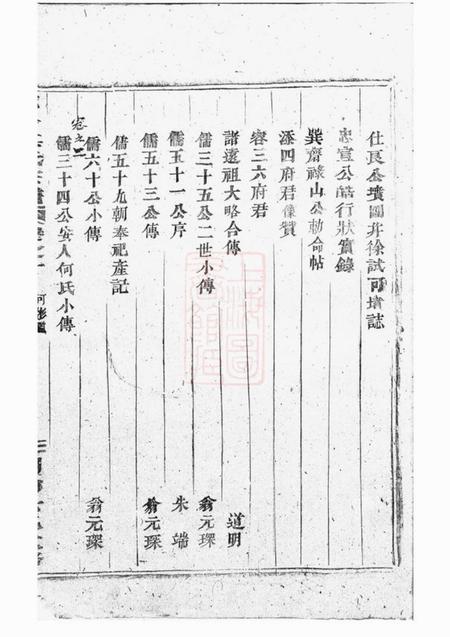 仕良公墳圖并徐試可墳誌
忠宣公皓行狀實錄
巽齋祿山公勅命帖
添四府君像贊
容三六府君
諸遠祖大略合傳 道明
儒三十五公二世小傳 翁元琛
儒五十一公序 朱端
儒五十三公傳 翁元琛
儒五十九朝奉祀產記
儒六十公小傳 翁元琛
卷之二
儒三十四公安人何氏小傳